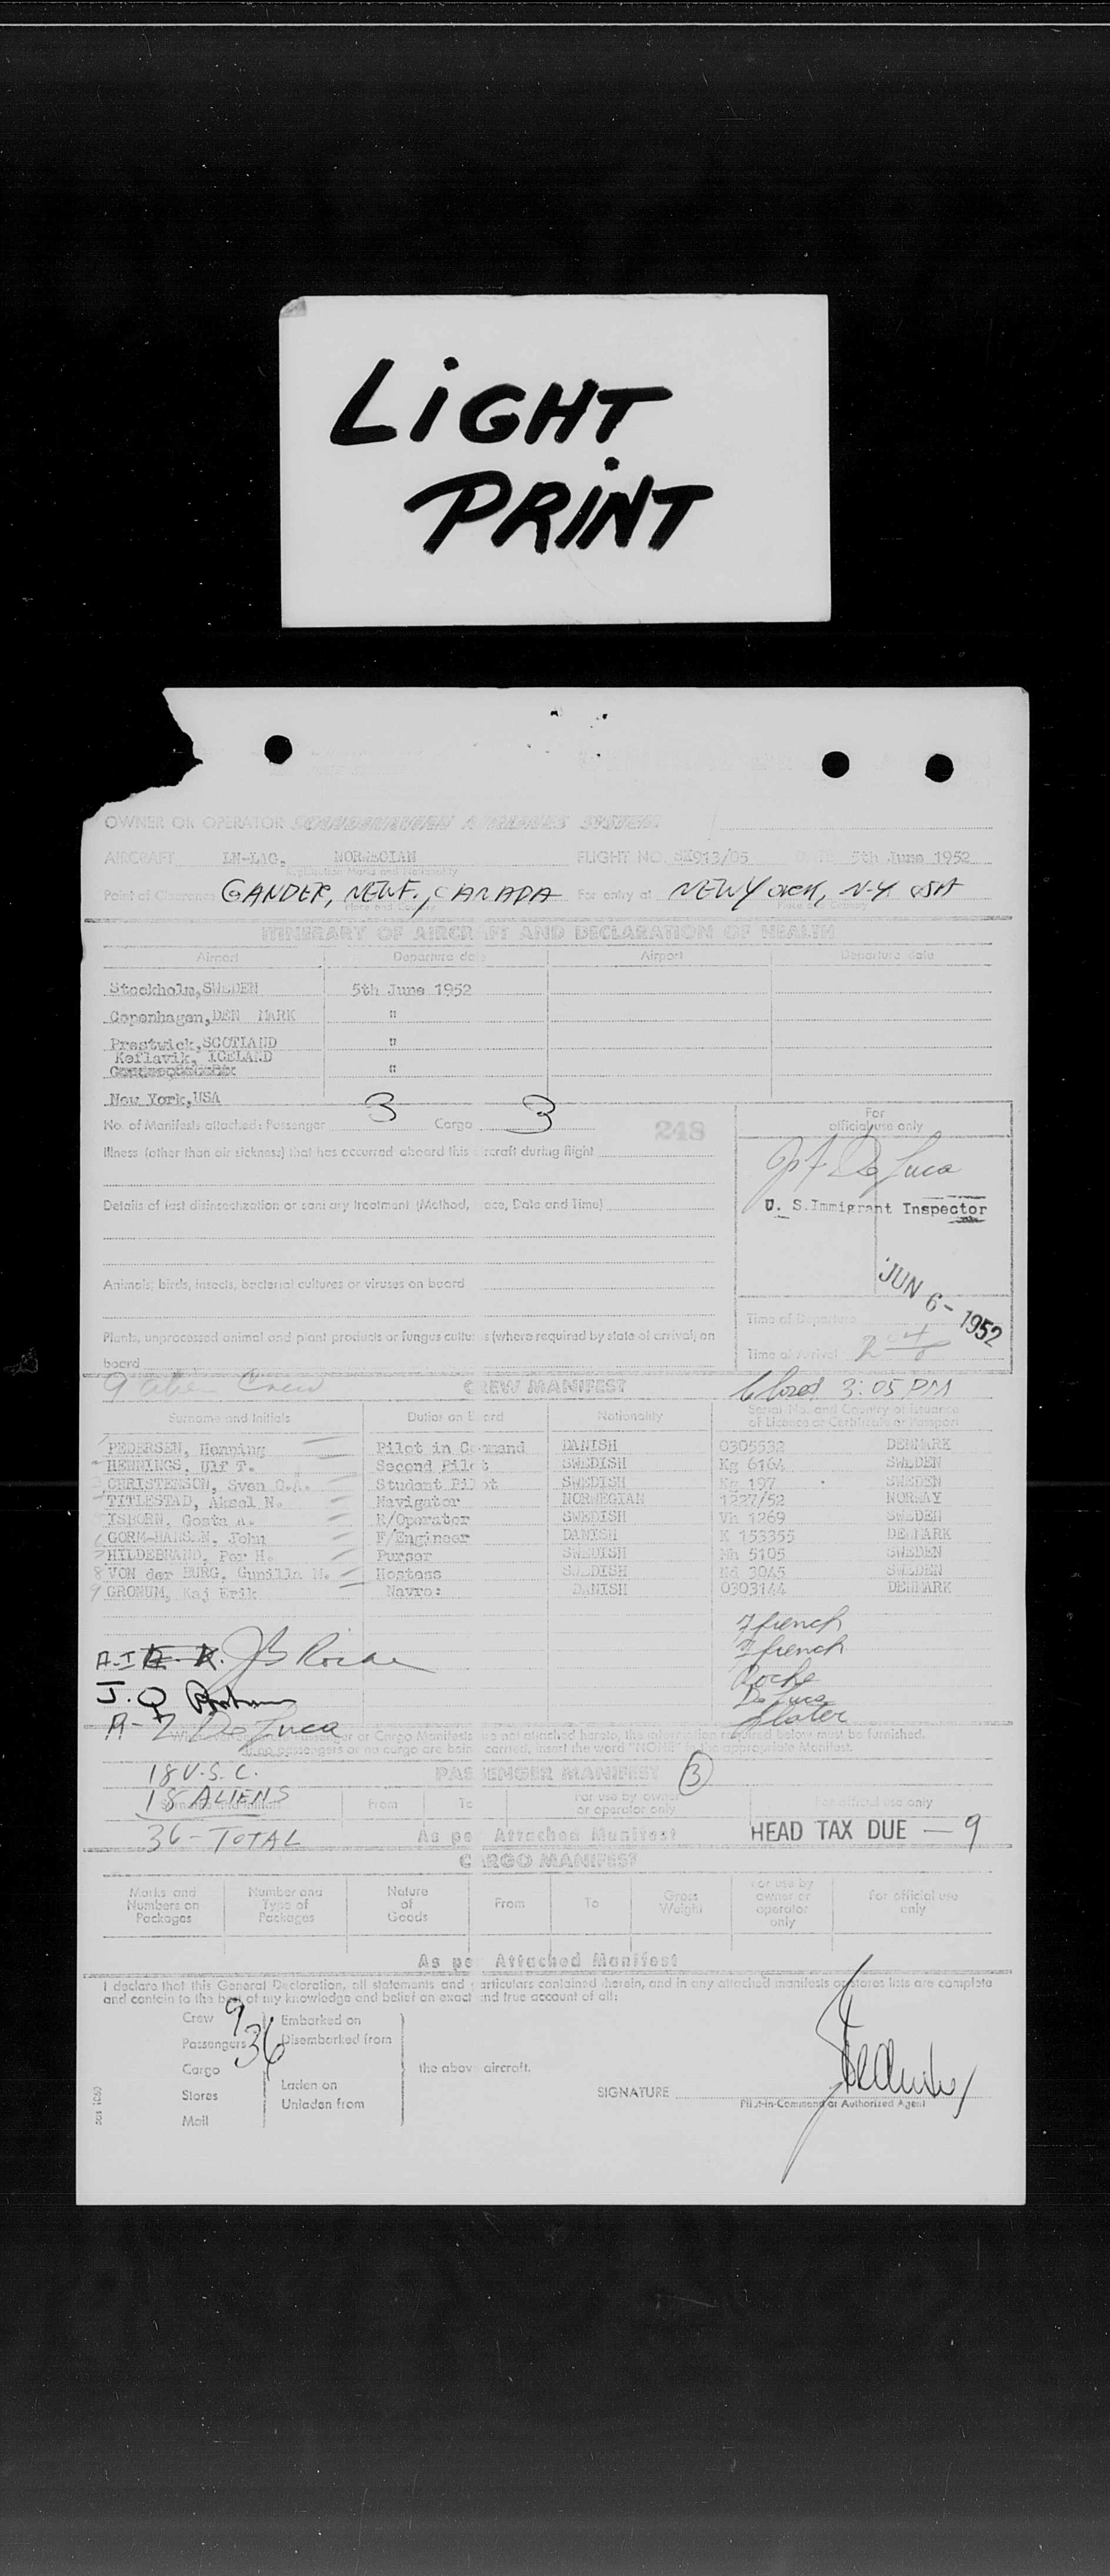 LiGHT
PRiNT
OWNER OR OPERATOR SCANDINAVIAN AIRLINES SYSTEM
AIRCRAFT LN-LAG, NORWEGIAN FLIGHT NO. SK913/05 DATE 5th June 1952
Registration Marks and Nationality
Point of Clearance GANDER, NEWF., CANADA For entry at NEW YORK, N.Y. USA
Place and Country Place and Country
ITINERARY OF AIRCRAFT AND DECLARATION OF HEALTH
Airport Departure date Airport Departure date
Stockholm,SWEDEN 5th June 1952
Copenhagen,DEN MARK "
Prestwick,SCOTLAND "
Keflavik, ICELAND
"
New York,USA
No. of Manifests attached: Passenger 3 Cargo 3
248
For
official use only
Illness (other than air sickness) that has occurred aboard this aircraft during flight
De Luca
Details of last disinsectization or sanitary treatment (Method, Place, Date and Time)
U. S. Immigrant Inspector
Animals, birds, insects, bacterial cultures or viruses on board
JUN 6 - 1952
Time of Departure
Plants, unprocessed animal and plant products or fungus cultures (where required by state of arrival) on
board
Time of Arrival
9 alien Crew CREW MANIFEST Closed 3:05 PM
Surname and Initials Duties on Board Nationality Serial No. and Country of Issuance
of Licence or Certificate or Passport
PEDERSEN, Henning Pilot in Command DANISH 0305532 DENMARK
HENNINGS, Ulf T. Second Pilot SWEDISH Kg 6164 SWEDEN
CHRISTENSON, Sven O.A. Student Pilot SWEDISH Kg 197 SWEDEN
TITLESTAD, Aksel N. Navigator NORWEGIAN 1227/52 NORWAY
ISBORN, Gosta A. R/Operator SWEDISH Vh 1269 SWEDEN
6 GORM-HANSEN, John F/Engineer DANISH K 153355 DENMARK
7 HILDEBRAND, Per H. Purser SWEDISH Mh 5105 SWEDEN
8 VON der BURG, Gunilla M. Hostess SWEDISH Nd 3045 SWEDEN
9 GRONUM, Kaj Erik Navro: DANISH 0303144 DENMARK
french
french
A-I
Roche
J. Q
De Luca
A-Z De Luca
Slater
Whenever separate Passenger or Cargo Manifests are not attached hereto, the information required below must be furnished.
If no passengers or no cargo are being carried, insert the word "NONE" in the appropriate Manifest.
18 U.S.C. PASSENGER MANIFEST 3
18 ALIENS
Surname and Initials From To For use by owner
or operator only For official use only
36 - TOTAL As per Attached Manifest HEAD TAX DUE — 9
CARGO MANIFEST
Marks and
Numbers on
Packages Number and
Type of
Packages Nature
of
Goods From To Gross
Weight For use by
owner or
operator
only For official use
only
As per Attached Manifest
I declare that this General Declaration, all statements and particulars contained therein, and in any attached manifests or stores lists are complete
and contain to the best of my knowledge and belief an exact and true account of all:
Crew 9 Embarked on
Passengers 36 Disembarked from
Cargo the above aircraft.
Stores Laden on
SIGNATURE
Unladen from
Pilot-in-Command or Authorized Agent
Mail